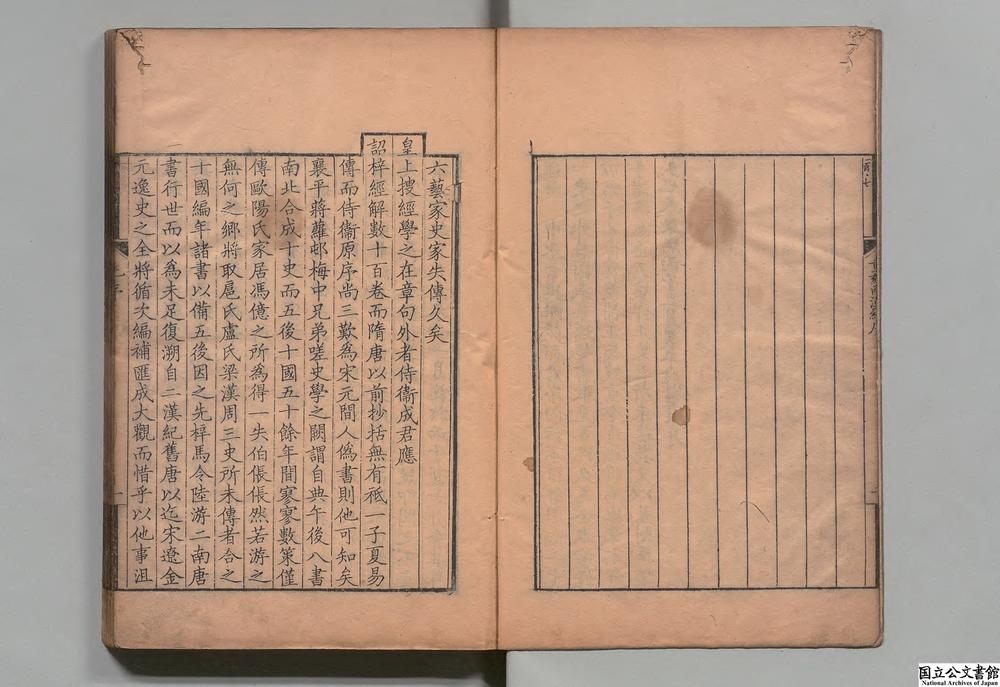 六藝家史家失傳久矣
皇上搜經學之在章句外者侍衞成君應
詔梓經解數十百卷而隋唐以前抄括無有祗一子夏易
傳而侍衞原序尚三歎為宋元間人僞書則他可知矣
襄平蔣蘿邨梅中兄弟嗟史學之闕謂自典午後八書
南北合成十史而五後十國五十餘年間寥寥數策僅
傳歐陽氏家居馮億之所為得一失伯倀倀然若游之
無何之鄉將取扈氏盧氏梁漢周三史所未傳者合之
十國編年諸書以備五後因之先梓馬令陸游二南唐
書行世而以為未足復溯自二漢紀舊唐以迄宋遼金
元逸史之全將循次編補匯成大觀而惜乎以他事沮
国立公文書館
National Archives of Japan